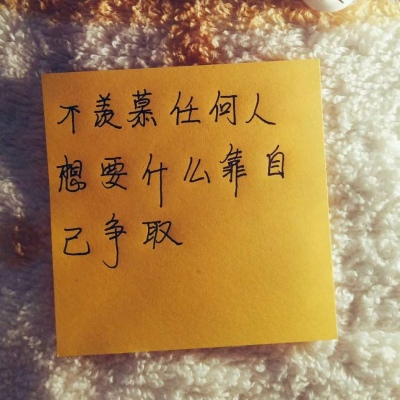 不羡慕任何人
想要什么靠自
己争取